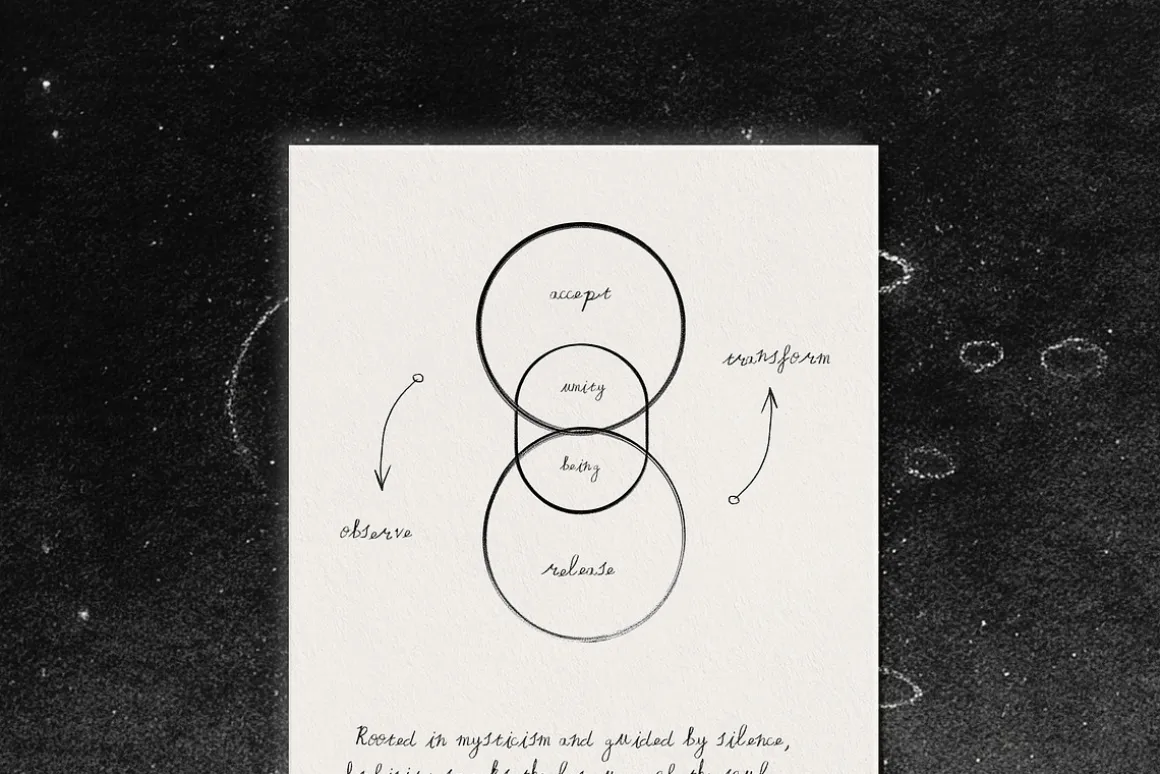 accept
transform
unity
being
observe
release
Rooted in mysticism and guided by silence,
of the soul